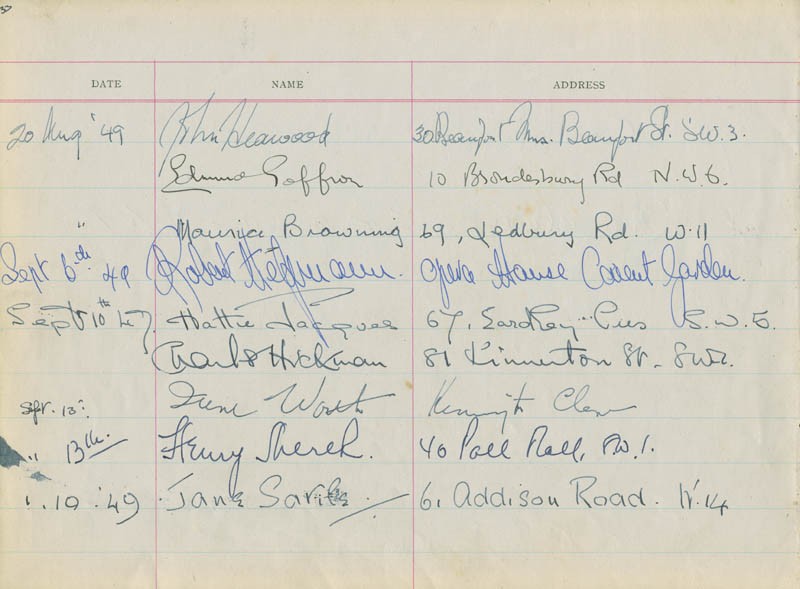 DATE NAME ADDRESS
20 Aug '49 John Heawood 30 Beaufort Mns. Beaufort St. S.W.3.
Edmund Goffron 10 Brondesbury Rd N.W.6.
" Maurice Browning 69, Ledbury Rd. W.11
Sept 6th 49 Robert Helpmann. Opera House Covent Garden.
Sept 10th 47. Hattie Jacques 67, Eardley Cres S.W.5.
Charles Hickman 81 Kinnerton St. SW1.
Spt. 13: Irene Worth Close
" 13th. Henry Sherek. 40 Pall Mall, S.W.1.
". 10 '49 Jane 61 Addison Road. W.14